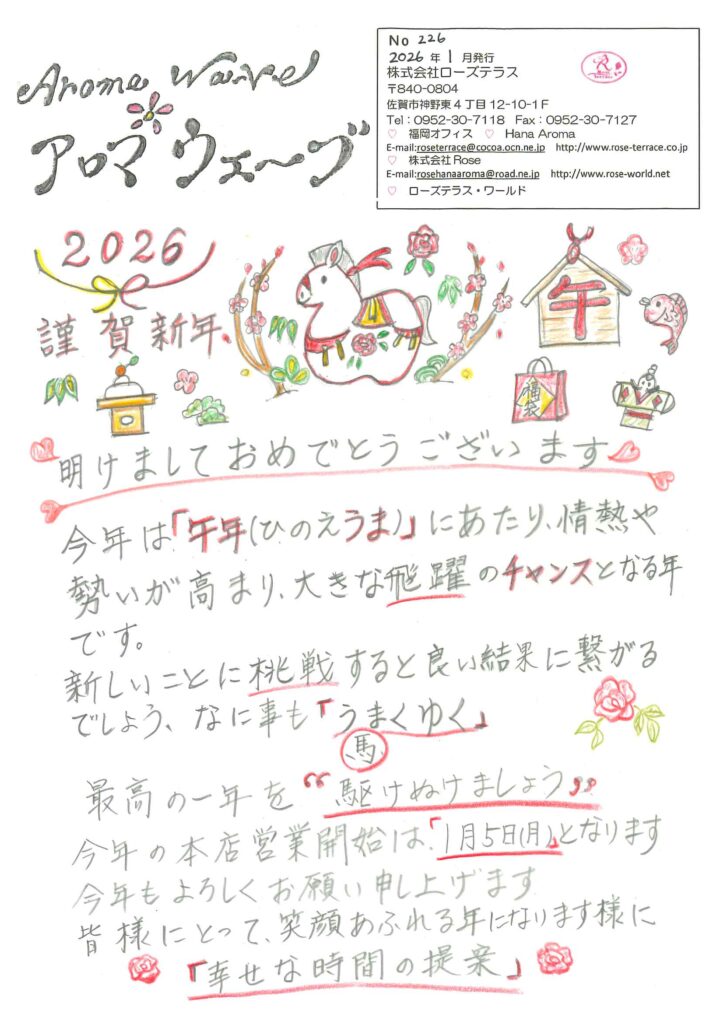 Arome Wave
アロマウェ〜ブ
No 226
2026 年 1 月発行
株式会社ローズテラス
〒840-0804
佐賀市神野東４丁目 12-10-１F
Tel：0952-30-7118 Fax：0952-30-7127
♡ 福岡オフィス ♡ Hana Aroma
E-mail:roseterrace@cocoa.ocn.ne.jp http://www.rose-terrace.co.jp
♡ 株式会社 Rose
E-mail:rosehanaaroma@road.ne.jp http://www.rose-world.net
♡ ローズテラス・ワールド
2026
謹賀新年
午
福袋
明けましておめでとうございます
今年は「午年(ひのえうま)」にあたり、情熱や
勢いが高まり、大きな飛躍のチャンスとなる年
です。
新しいことに挑戦すると良い結果に繋がる
でしょう、なに事も「うまくゆく」
馬
最高の一年を“駆けぬけましょう”
今年の本店営業開始は、「1月5日(月)」となります
今年もよろしくお願い申し上げます
皆様にとって、笑顔あふれる年になります様に
「幸せな時間の提案」